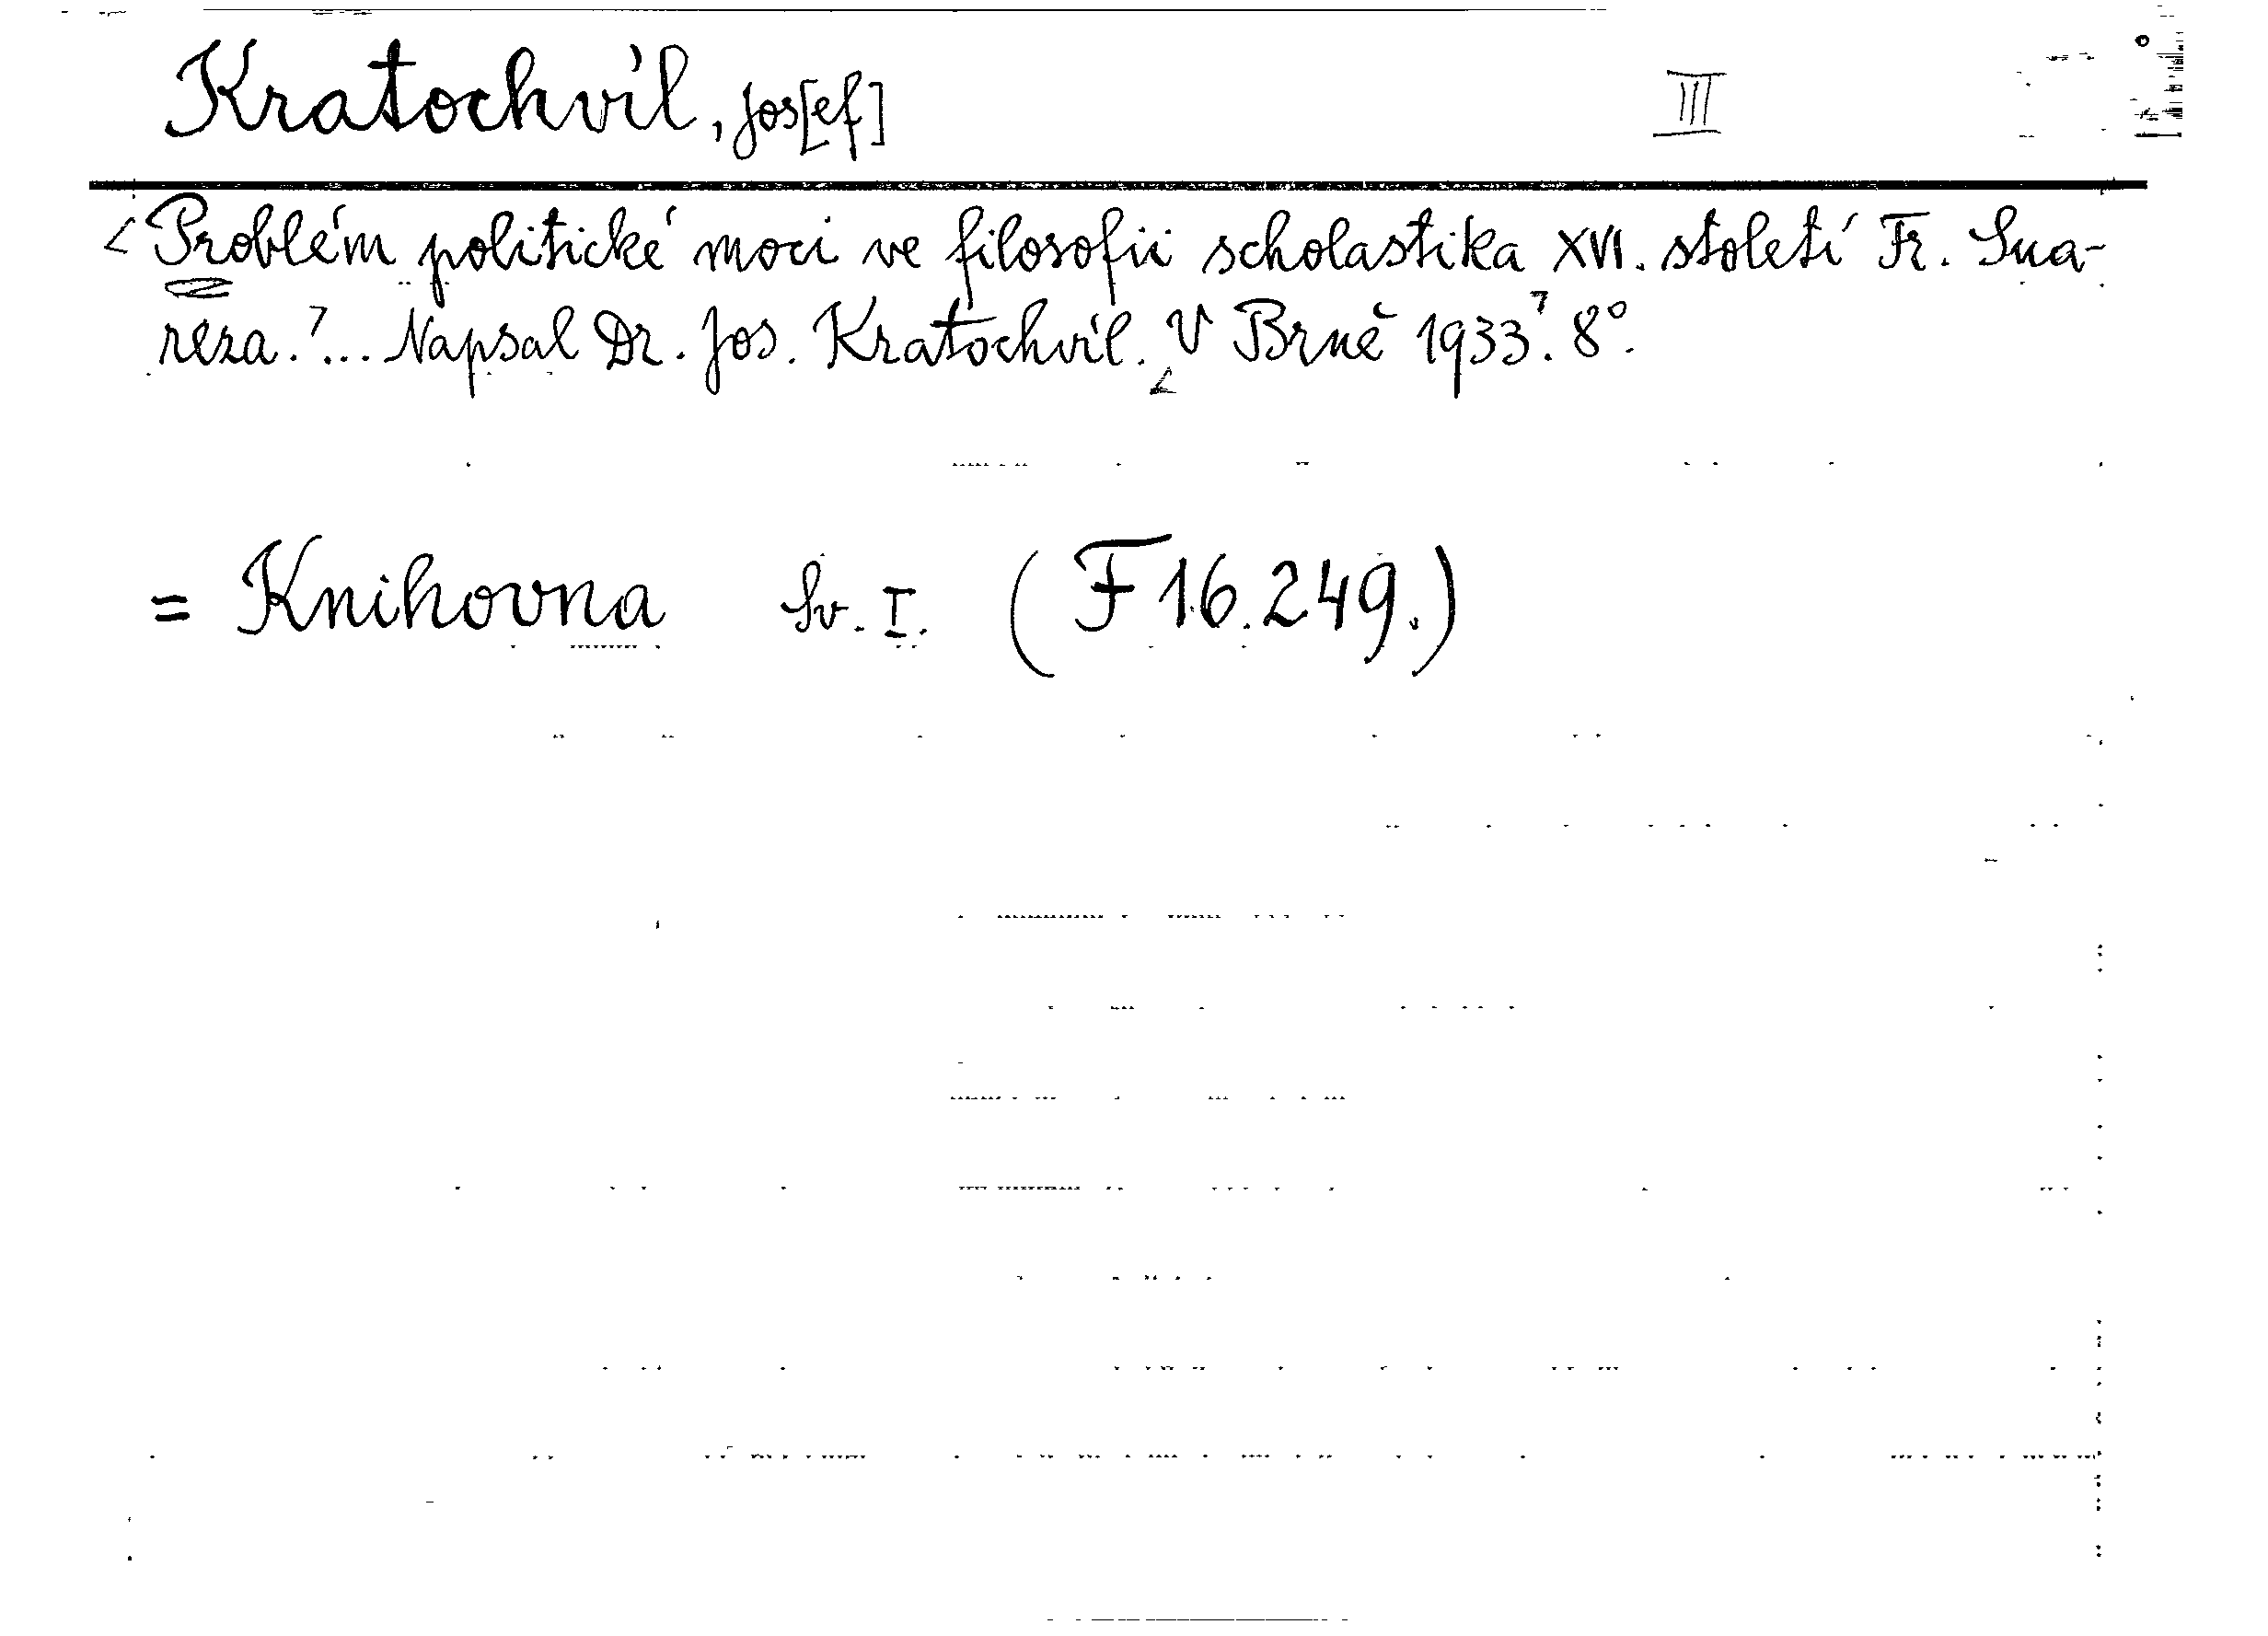 Kratochvíl, Jos[ef] III
Problém politické moci ve filosofii scholastika XVI. století Fr. Sua-
reza. ... Napsal Dr. Jos. Kratochvíl. V Brně 1933. 8°.
= Knihovna Sv. I. (F 16.249.)